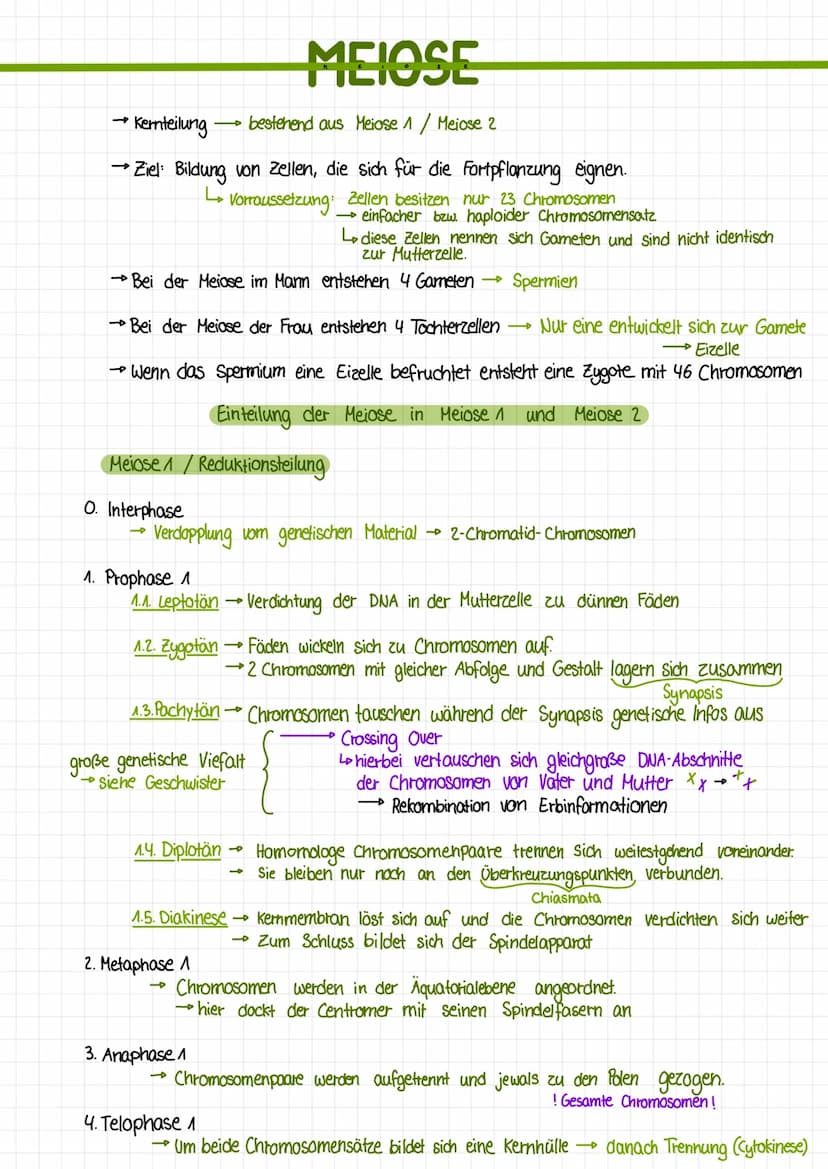 MEIOSE
→ Kernteilung → bestehend aus Meiose 1 / Meiose 2
→ Ziel: Bildung von Zellen, die sich für die Fortpflanzung eignen.
↳ Vorraussetzung: Zellen besitzen nur 23 Chromosomen
→ einfacher bzw. haploider Chromosomensatz
↳ diese Zellen nennen sich Gameten und sind nicht identisch
zur Mutterzelle.
→ Bei der Meiose im Mann entstehen 4 Gameten → Spermien
→ Bei der Meiose der Frau entstehen 4 Tochterzellen → Nur eine entwickelt sich zur Gamete
→ Eizelle
→ Wenn das Spermium eine Eizelle befruchtet entsteht eine Zygote mit 46 Chromosomen
Einteilung der Meiose in Meiose 1 und Meiose 2
Meiose 1 / Reduktionsteilung
0. Interphase
→ Verdopplung vom genetischen Material → 2-Chromatid-Chromosomen
1. Prophase 1
1.1. Leptotän → Verdichtung der DNA in der Mutterzelle zu dünnen Fäden
1.2. Zygotän → Fäden wickeln sich zu Chromosomen auf.
→ 2 Chromosomen mit gleicher Abfolge und Gestalt lagern sich zusammen
Synapsis
1.3. Pachytän → Chromosomen tauschen während der Synapsis genetische Infos aus
→ Crossing Over
große genetische Vielfalt
→ siehe Geschwister
↳ hierbei vertauschen sich gleichgroße DNA-Abschnitte
der Chromosomen von Vater und Mutter x x → + +
→ Rekombination von Erbinformationen
1.4. Diplotän → Homomologe Chromosomenpaare trennen sich weitestgehend voneinander.
→ Sie bleiben nur noch an den Überkreuzungspunkten verbunden.
Chiasmata
1.5. Diakinese → Kernmembran löst sich auf und die Chromosomen verdichten sich weiter
→ Zum Schluss bildet sich der Spindelapparat
2. Metaphase 1
→ Chromosomen werden in der Äquatorialebene angeordnet.
→ hier dockt der Centromer mit seinen Spindelfasern an
3. Anaphase 1
→ Chromosomenpaare werden aufgetrennt und jewals zu den Polen gezogen.
! Gesamte Chromosomen !
4. Telophase 1
→ Um beide Chromosomensätze bildet sich eine Kernhülle → danach Trennung (Cytokinese)